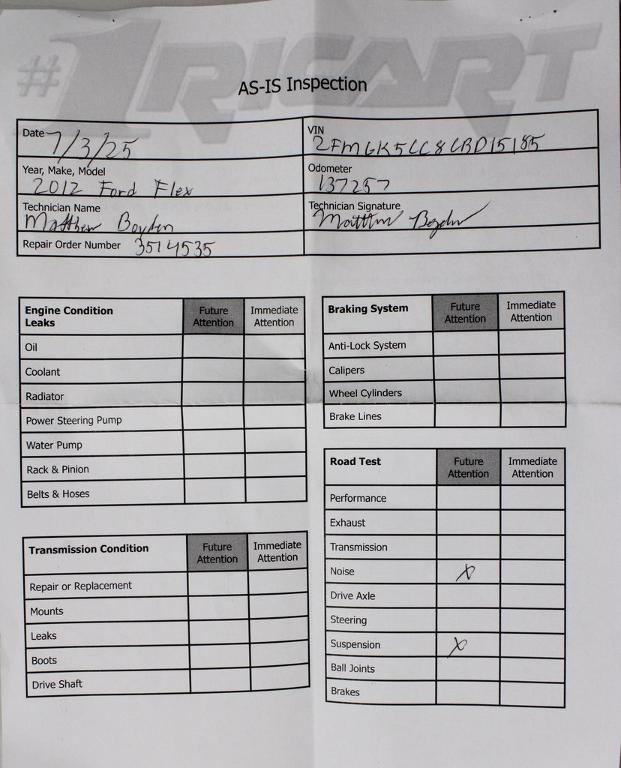 #1RICART
AS-IS Inspection
Date 7/3/25
VIN 2FMGK5CC8CBD15185
Year, Make, Model 2012 Ford Flex
Odometer 137257
Technician Name Matthew Boyden
Technician Signature Matthew Boyden
Repair Order Number 3514535
Engine Condition Leaks Future Attention Immediate Attention
Oil
Coolant
Radiator
Power Steering Pump
Water Pump
Rack & Pinion
Belts & Hoses
Transmission Condition Future Attention Immediate Attention
Repair or Replacement
Mounts
Leaks
Boots
Drive Shaft
Braking System Future Attention Immediate Attention
Anti-Lock System
Calipers
Wheel Cylinders
Brake Lines
Road Test Future Attention Immediate Attention
Performance
Exhaust
Transmission
Noise X
Drive Axle
Steering
Suspension X
Ball Joints
Brakes